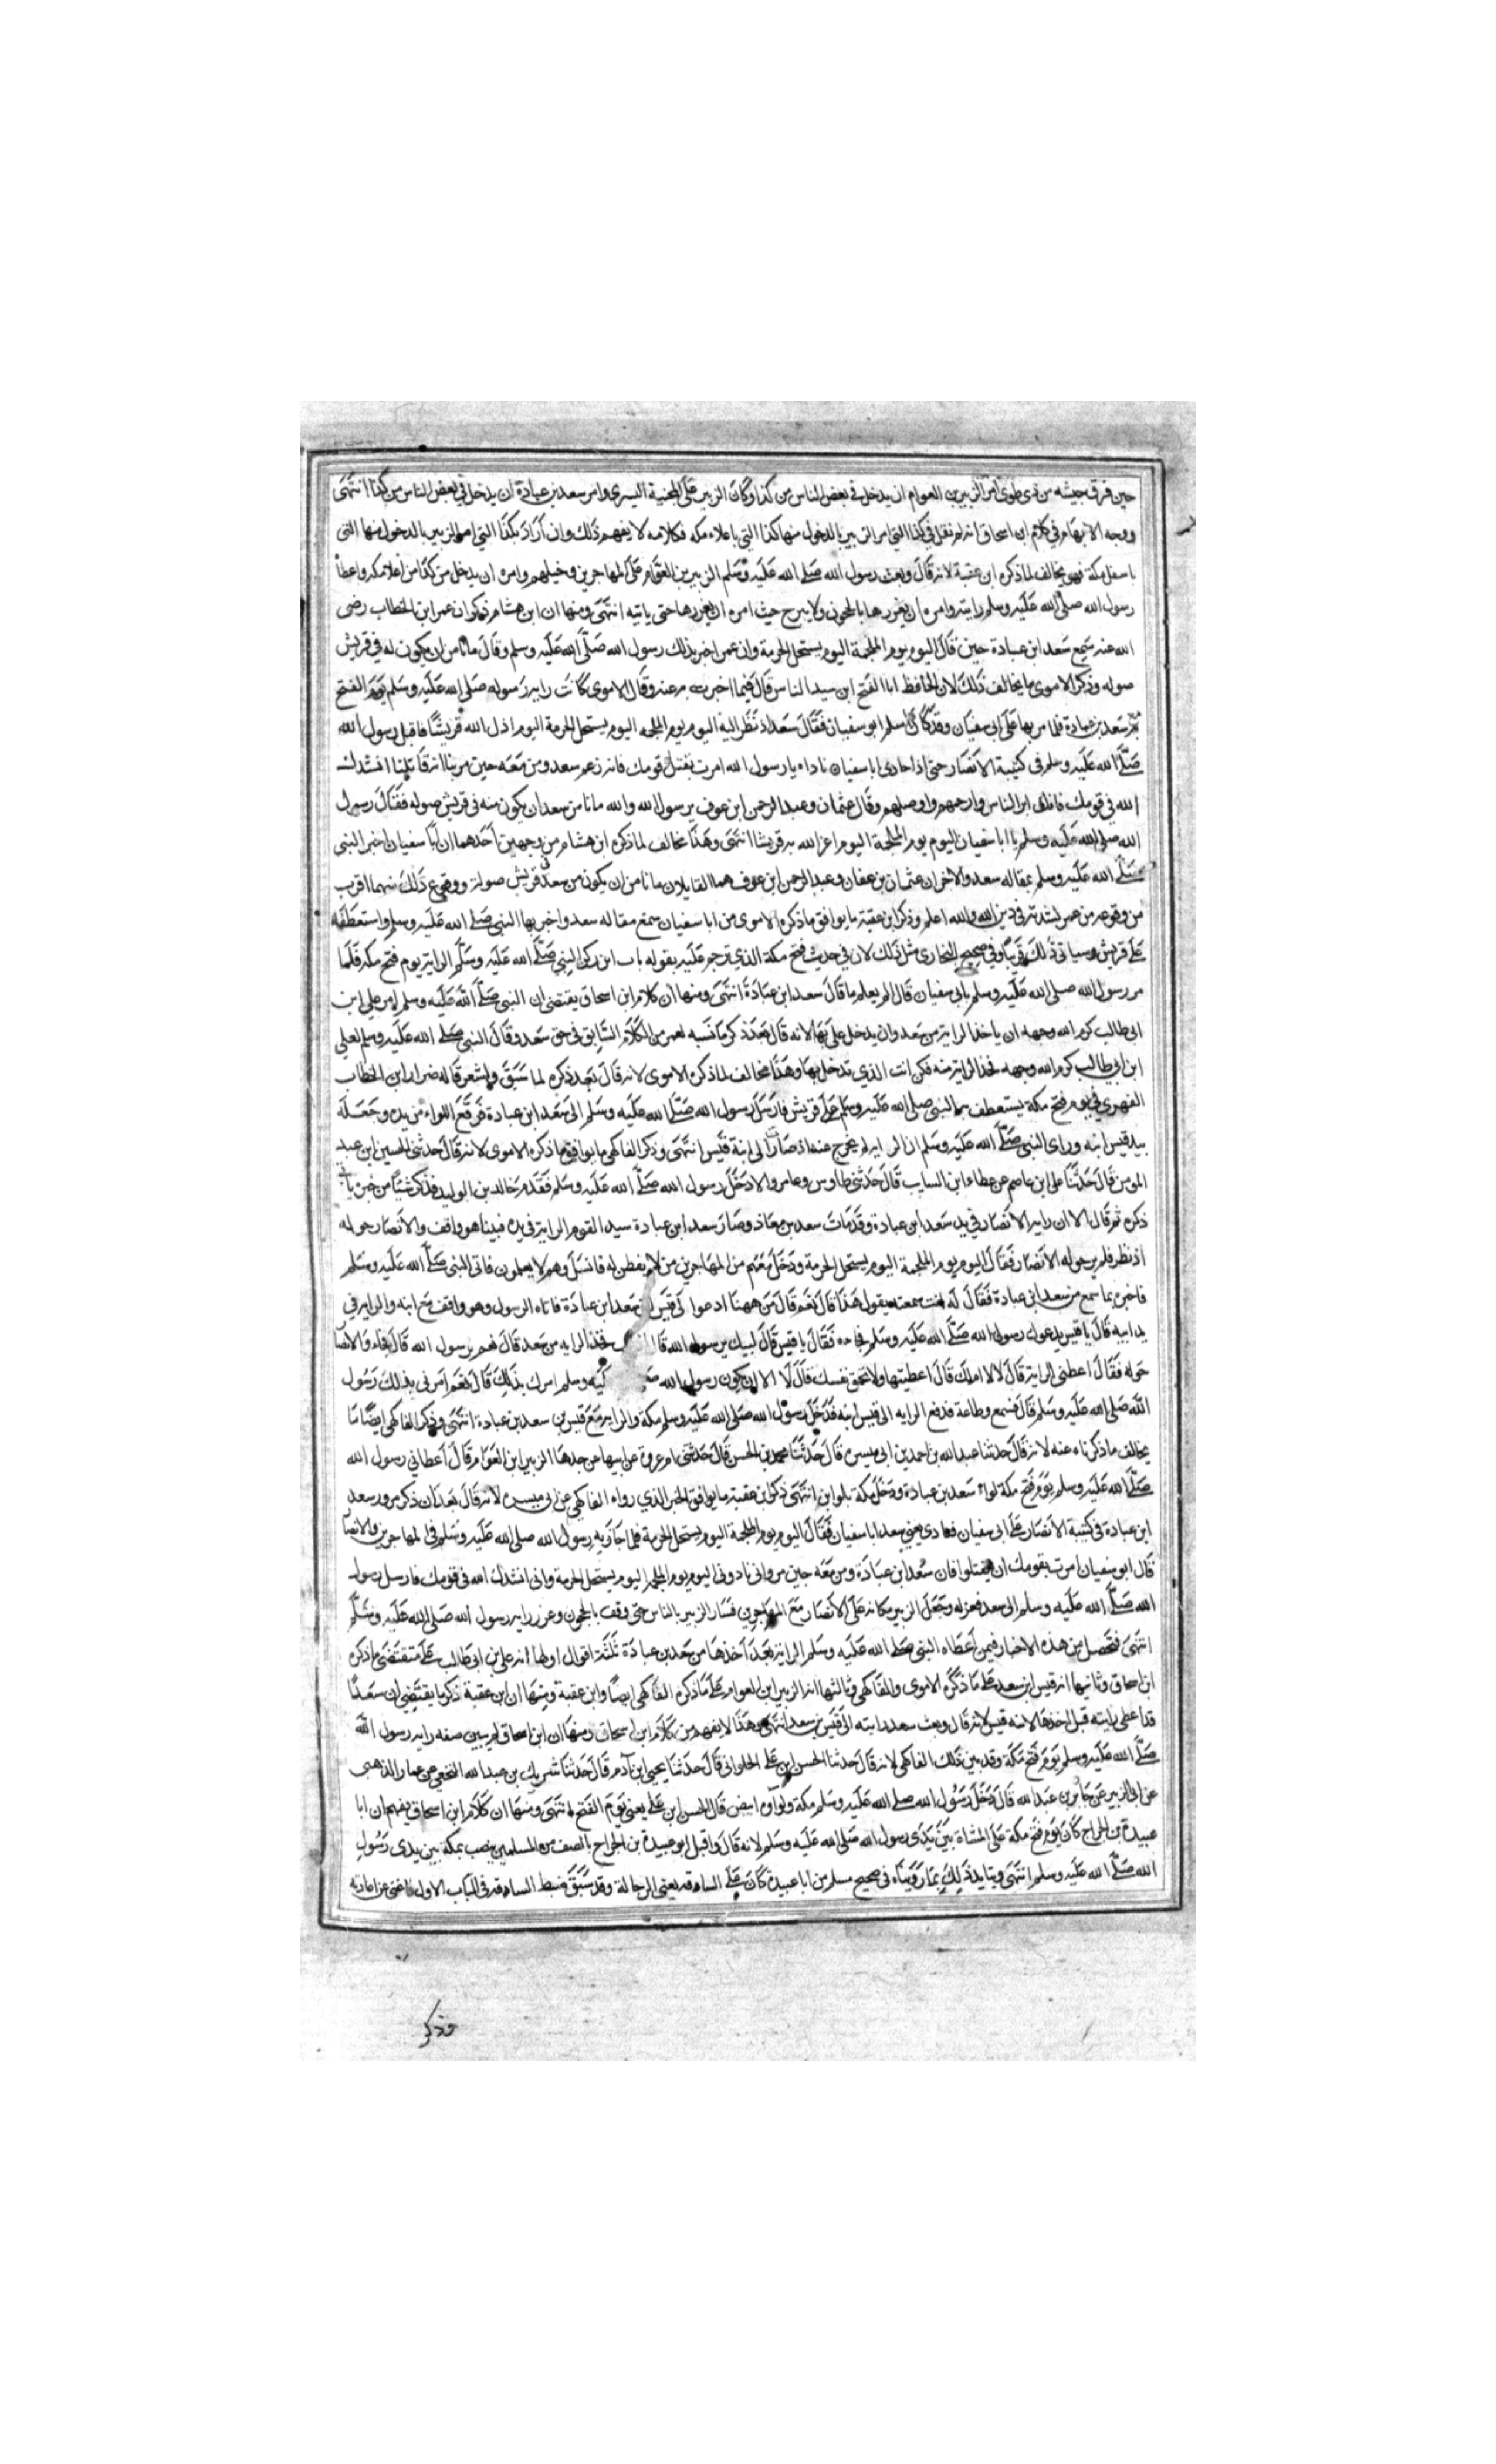 حين فرق جيشه من ذي طوى امر الزبير بن العوام ان يدخل في بعض الناس من كدا وكان الزبير على المجنبة اليسرى وامر سعد بن عبادة ان يدخل في بعض الناس من كدا انتهى
ووجه الابهام في كلام ابن اسحاق انه لم نقل في كدا التي امر الزبير بالدخول منها كدا التي باعلاء مكه فكلامه لا يفهم ذلك وان اراد بكدا التي امر الزبير بالدخول منها التي
باسفل مكة فهو يخالف لما ذكره ابن عقبة لانه قال وبعث رسول الله صلى الله عليه وسلم الزبير بن العوام على المهاجرين وخيلهم وامره ان يدخل من كدا من اعلا مكه واعطاه
رسول الله صلى الله عليه وسلم رايته وامره ان يغررها بالحجون ولا يبرح حيث امره ان يغررها حتى ياتيه انتهى ومنها ان ابن هشام ذكر ان عمر ابن الخطاب رضى
الله عنه سمع سعد ابن عبادة حين قال اليوم يوم الملحمة اليوم يستحل الحرمة وان عمر اخبر بذلك رسول الله صلى الله عليه وسلم وقال ما نامن ان يكون له في قريش
صوله وذكر الاموى ما يخالف ذلك لان الحافظ ابا الفتح ابن سيد الناس قال فيما اخبرت به عنه وقال الاموى كانت راية رسوله صلى الله عليه وسلم يوم الفتح
بيد سعد بن عبادة فلما مر بها على ابى سفيان وقد كان اسلم ابو سفيان فقال سعد اذ نظر اليه اليوم يوم الملحمه اليوم يستحل الحرمة اليوم اذل الله قريشا فاقبل رسول الله
صلى الله عليه وسلم فى كتيبة الانصار حتى اذا حاذى ابا سفيان ناداه يا رسول الله امرت بقتل قومك فانه زعم سعد ومن معه حين مر بنا انه قاتلنا انشدك
الله في قومك فانك ابر الناس وارحمهم واوصلهم وقال عثمان وعبد الرحمن ابن عوف يرسول الله والله ما نامن سعد ان يكون منه فى قريش صوله فقال رسول
الله صلى الله عليه وسلم يا ابا سفيان اليوم يوم الملحمة اليوم اعز الله به قريشا انتهى وهذا يخالف لما ذكره ابن هشام من وجهين احدهما ان ابا سفيان اخبر النبي
صلى الله عليه وسلم بمقاله سعد والاخر ان عثمان بن عفان وعبد الرحمن ابن عوف هما القايلان ما نامن ان يكون من سعد فى قريش صولة ووقوع ذلك منهما اقرب
من وقوعه من عمر لشدته في دين الله والله اعلم وذكر ابن عقبة ما يوافق ما ذكره الاموى من ابا سفيان سمع مقاله سعد واخبر بها النبي صلى الله عليه وسلم واستعطفه
على قريش وسياتى ذلك قريبا وفي صحيح البخارى مثل ذلك لان في حديث فتح مكة الذي ترجم عليه بقوله باب اين ركز النبي صلى الله عليه وسلم الراية يوم فتح مكه فلما
مر رسول الله صلى الله عليه وسلم بابى سفيان قال الم يعلم ما قال سعد ابن عبادة انتهى ومنها ان كلام ابن اسحاق يقتضى ان النبي صلى الله عليه وسلم امر على ابن
ابى طالب كرم الله وجهه ان ياخذ الراية من سعد وان يدخل على بها لانه قال بعد ذكر ما نسبه لعمر من الكلام السابق في حق سعد وقال النبي صلى الله عليه وسلم لعلي
ابن ابي طالب كرم الله وجهه فخذ الراية منه فكن انت الذي تدخل بها وهذا مخالف لما ذكره الاموى لانه قال بعد ذكره لما سبق ولشعر قاله ضرار ابن الخطاب
الفهري في يوم فتح مكة يستعطف به النبي صلى الله عليه وسلم على قريش فارسل رسول الله صلى الله عليه وسلم الى سعد ابن عبادة فرفع اللواء من يده وجعله
بيد قيس ابنه وراى النبي صلى الله عليه وسلم ان الراية لم يخرج عنه اذ صارت الى ابنه قيس انتهى وذكر الفاكهى ما يوافق ما ذكره الاموى لانه قال حدثنى الحسين ابن عبد
المومن قال حدثنا على ابن عاصم عن عطاء ابن السايب قال حدثنى طاوس وعامر والا دخل رسول الله صلى الله عليه وسلم فقدم خالد بن الوليد فذكر شيئا من خبر ياتى
ذكره ثم قال الا ان راية الانصار في يد سعد ابن عبادة وقد مات سعد بن معاذ وصار سعد ابن عبادة سيد القوم الراية في يده فبينا هو واقف والانصار حوله
اذ نظر فلم ير حوله الا الانصار فقال اليوم يوم الملحمة اليوم يستحل الحرمة ودخل معهم من المهاجرين من لم يفطن له فانسل وهم لا يعلمون فاتى النبى صلى الله عليه وسلم
فاخبره بما سمع من سعد ابن عبادة فقال له انت سمعته يقول هذا قال نعم قال من ههنا ادعوا لى قيس بن سعد ابن عبادة فاتاه الرسول وهو واقف مع ابنه والراية في
يد ابيه قال يا قيس يدعوك رسول الله صلى الله عليه وسلم فجاءه فقال يا قيس قال لبيك يرسول الله قال فخذ الرايه من سعد قال نعم يرسول الله قال فجاء والانصار
حوله فقال اعطنى الراية قال لا لا املك قال اعطيتها ولا تحمق نفسك قال لا الا ان يكون رسول الله صلى عليه وسلم امرك بذلك قال نعم امرنى بذلك رسول
الله صلى الله عليه وسلم قال فسمع وطاعة فدفع الرايه الى قيس ابنه فدخل رسول الله صلى الله عليه وسلم مكة والراية مع قيس بن سعد بن عبادة انتهى وذكر الفاكهى ايضا ما
يخالف ما ذكرناه عنه لانه قال حدثنا عبد الله بن احمد بن ابى ميسره قال حدثنا محمد بن الحسن قال حدثتنى ام عروة عن ابيها عن جدها الزبير ابن العوام قال اعطاني رسول الله
صلى الله عليه وسلم يوم فتح مكة لواء سعد بن عبادة ودخل مكة بلواين انتهى وذكر ابن عقبة ما يوافق الخبر الذي رواه الفاكهى عن ابى ميسره لانه قال بعد ان ذكر مرور سعد
ابن عبادة في كتيبة الانصار على ابى سفيان فنادى يعني سعد ابا سفيان فقال اليوم يوم الملحمة اليوم يستحل الحرمة فلما جاز به رسول الله صلى الله عليه وسلم في المهاجرين والانصار
قال ابو سفيان امرت بقومك ان يقتلوا فان سعد ابن عبادة ومن معه حين مروا نى نادونى اليوم يوم الملحمه اليوم يستحل الحرمة وانى انشدك الله فى قومك فارسل رسول
الله صلى الله عليه وسلم الى سعد فعزله وجعل الزبير مكانه على الانصار مع المهاجرين فسار الزبير بالناس حتى وقف بالحجون وغرز راية رسول الله صلى الله عليه وسلم
انتهى فتحصل من هذه الاخبار فيمن اعطاه النبي صلى الله عليه وسلم الراية بعد اخذها من سعد بن عبادة ثلثة اقوال اولها انه علي بن ابى طالب على مقتضى ما ذكره
ابن اسحاق وثانيها انه قيس ابن سعد على ما ذكره الاموى والفاكهى وثالثها انه الزبير ابن العوام على ما ذكره الفاكهى ايضا وابن عقبة ومنها ان ابن عقبة ذكر ما يقتضى ان سعدا
قد اعطى رايته قبل اخذها لابنه قيس لانه قال وبعث سعد رايته الى قيس بن سعد انتهى وهذا لا يفهم من كلام ابن اسحاق ومنها ان ابن اسحاق لم يبين صفه راية رسول الله
صلى الله عليه وسلم يوم فتح مكة وقد بين ذلك الفاكهى لانه قال حدثنا الحسن ابن على الحلوانى قال حدثنا يحيى ابن آدم قال حدثنا شريك بن عبد الله النخعى عن عمار الذهبى
عن ابى الزبير عن جابر بن عبد الله قال دخل رسول الله صلى الله عليه وسلم مكة ولواؤه ابيض قال الحسن ابن على يعنى يوم الفتح انتهى ومنها ان كلام ابن اسحاق يفهم ان ابا
عبيدة بن الجراح كان يوم فتح مكة على المشاة بين يدى رسول الله صلى الله عليه وسلم لانه قال واقبل ابو عبيدة بن الجراح بالصف من المسلمين ينصب بمكة بين يدى رسول
الله صلى الله عليه وسلم انتهى ويتايد ذلك بما رويناه فى صحيح مسلم من ابا عبيدة كان على الساقه يعنى الرجالة وقد سبق ضبط الساقه فى الباب الاول فاغنى عن اعادته
فذكر